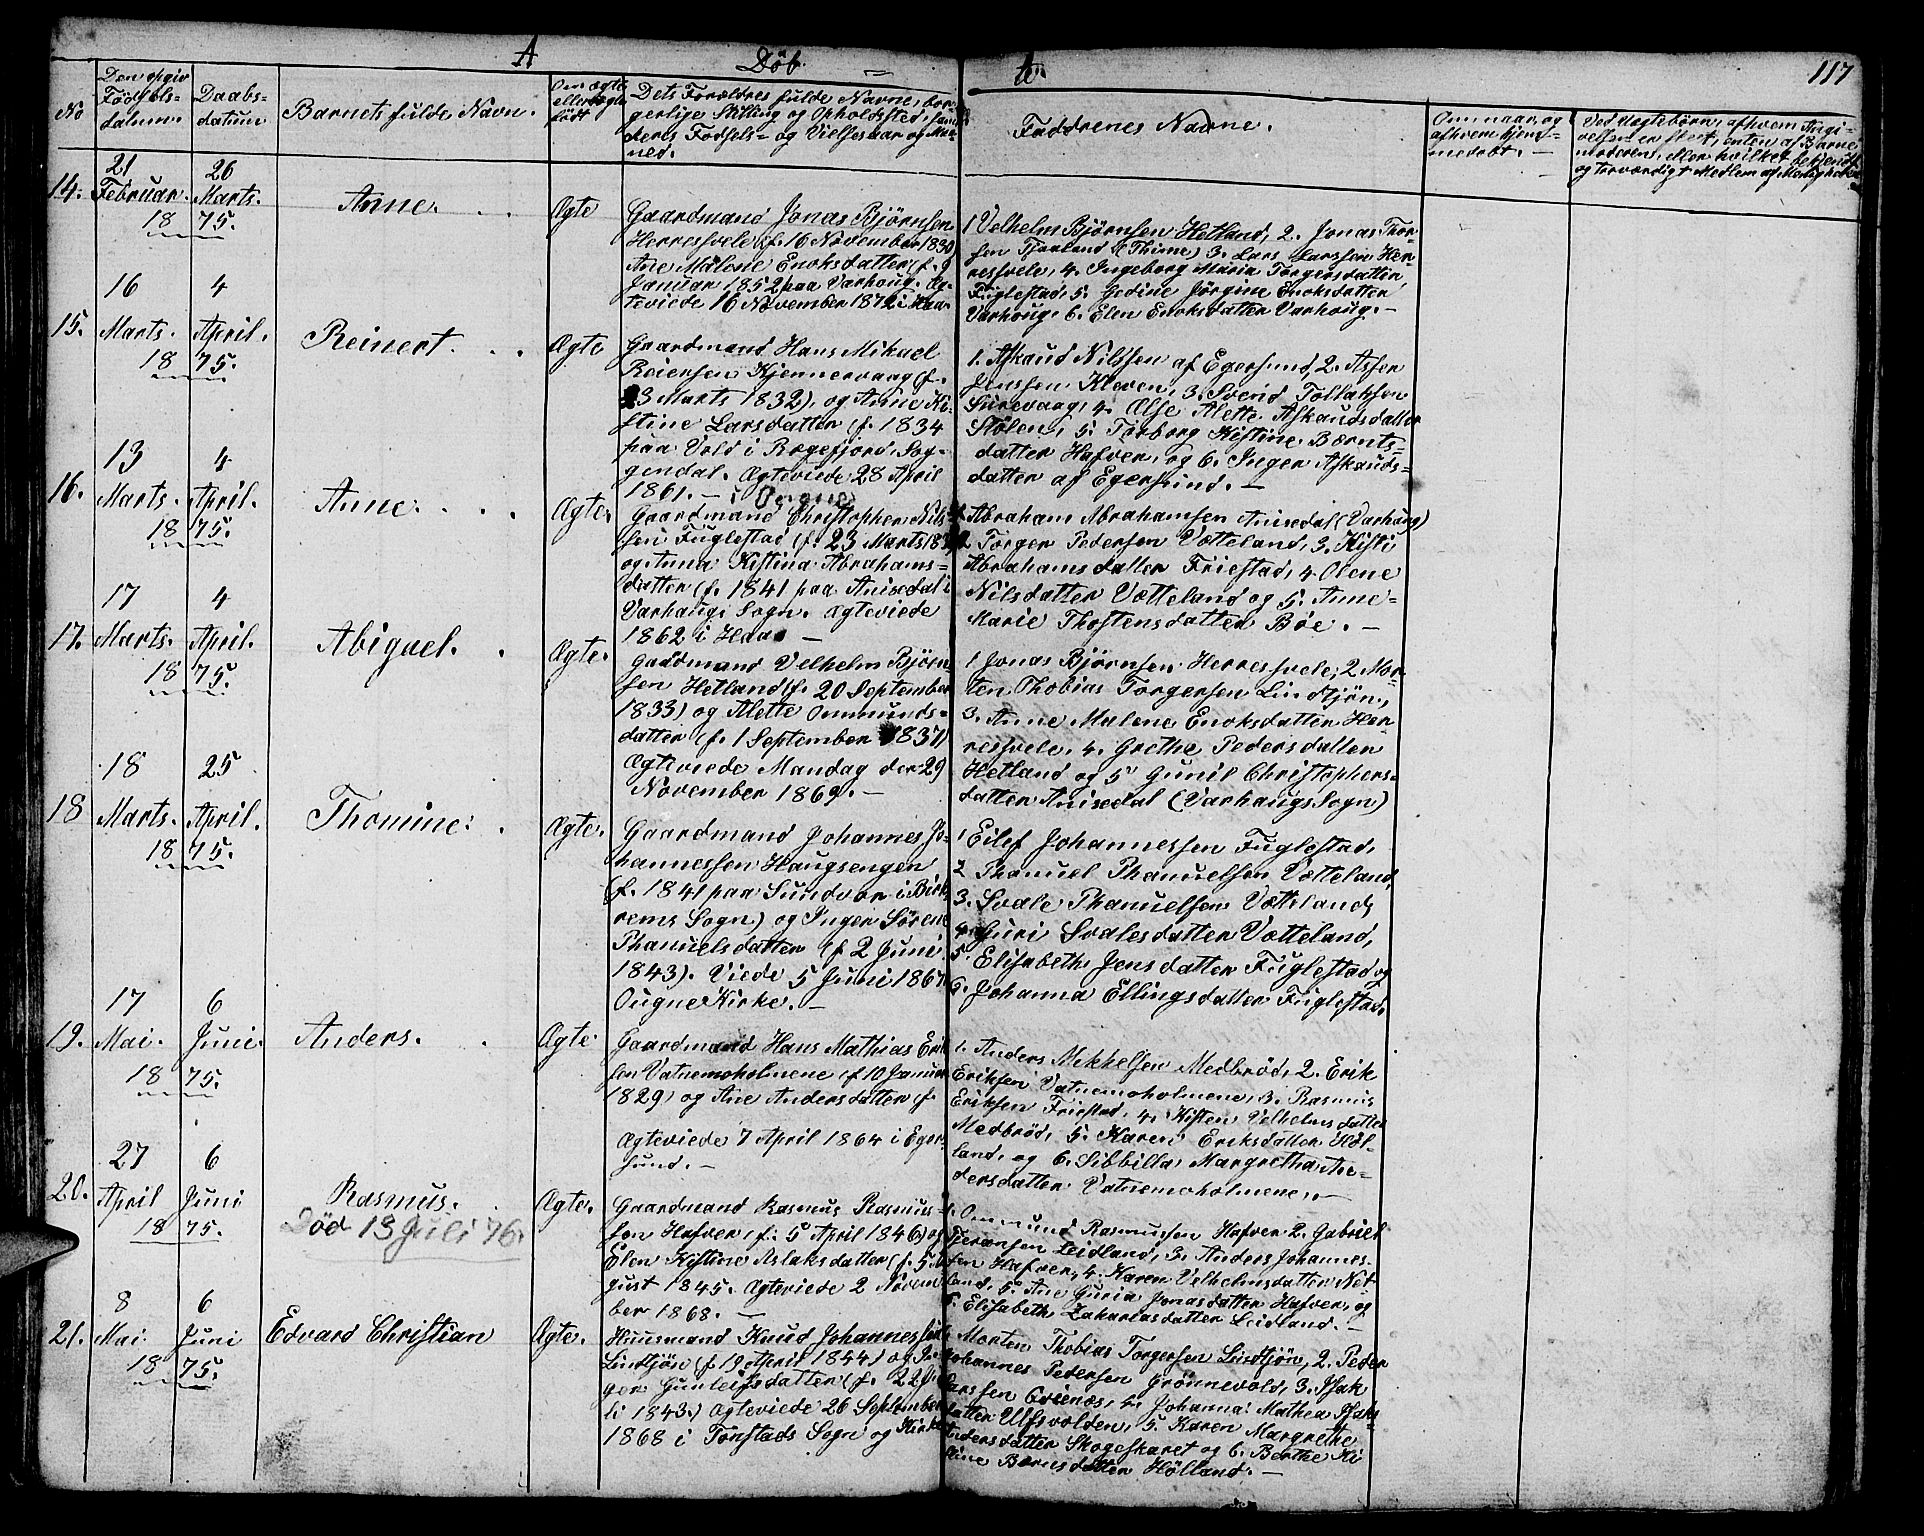 A
Døb.
te.
117
No
Den opgiv
Fødsels-
datum.
Daabs-
datum
Barnets fulde Navn.
Om ægte
eller uægte
født
Dets Forældres fulde Navne, bor-
gerlige Stilling og Opholdsted, sam
deres Fødsels- og Vielsesaar og Maa-
ned.
Faddrenes Navne.
Om naar, og
af hvem hjem-
medøbt. —
Ved Uægtebørn, af hvem Angi-
velsen er skeet, enten af Barne
moderen, eller hvilket bekjendt
og troværdigt Medlem af Menigheden
14.
21
Februar.
18
26
Marts.
75.
Anne.
Ægte
Gaardmand Jonas Bjørnsen
Herresvele (f. 16 November 1830
Ane Malene Enoksdatter (f. 9
Januar 1852 paa Varhoug. Æg-
teviede 16 November 1872 i Haa
1 Velhelm Bjørnsen Hetland, 2. Jonas Thor-
sen Tjorland (Thime) 3. Lars Larssen Her-
resvele, 4. Ingeborg Maria Torgersdatter
Fuglestad, 5. Gedine Jørgine Enoksdatter
Varhoug. 6. Elen Enoksdatter Varhoug. —
15.
16
Marts.
18
4
April.
75.
Reinert.
Ægte
Gaardmand Hans Mikael
Reiersen Kjennervaag (f.
23 Marts 1832), og Anne Ki-
stine Larsdatter (f. 1834
paa Vold i Rægefjord, Sog-
gendal. Ægteviede 28 April
1861. — i Ougne
1. Askaud Nilssen af Egersund, 2. Asser
Jenssen Kleven, 3. Svend Tollaksen
Sirevaag, 4. Else Alette Askaudsdatter
Stølen, 5. Torborg Kistine Bærnts-
datter Hafver, og 6. Inger Askauds-
datter af Egersund. —
16.
13
Marts.
18
4
April.
75.
Anne.
Ægte.
Gaardmand Christopher Nils-
sen Fuglestad (f. 23 Marts 18
og Anna Kistina Abrahams-
datter (f. 1841 paa Anisedal i
Varhaugs Sogn. Ægteviede
1862 i Haa. —
1. Abraham Abrahamsen Anisedal (Varhaug)
2 Torger Pedersen Vætteland, 3. Kisti
Abrahamsdatter Friestad, 4. Olene
Nilsdatter Vætteland og 5. Anne-
Marie Thostensdatter Bøe. —
17.
17
Marts.
18
4
April.
75.
Abigael.
Ægte.
Gaardmand Velhelm Bjørn-
sen Hetland (f. 20 September
1833) og Alette Ommunds-
datter (f. 1 September 1837)
Ægteviede Mandag den 29
November 1869. —
1 Jonas Bjørnsen Herresvele, 2 Mor-
ten Thobias Torgersen Lindtjøn,
3. Anne Malene Enoksdatter Her-
resvele, 4. Grethe Pedersdatter
Hetland og 5 Gunil Christophers-
datter Anisedal (Varhaugs Sogn)
18
18
Marts.
18
25
April.
75.
Thomine.
Ægte.
Gaardmand Johannes Jo-
hannessen Haugsengen
(f. 1841 paa Sundvor i Birk-
rems Sogn) og Inger Sørene
Phanuelsdatter (f 2 Juni
1843). Viede 5 Juni 1867
Ougne Kirke. —
1 Eilef Johannessen Fuglestad,
2 Phanuel Phanuelsen Vætteland,
3. Svale Phanuelsen Vætteland,
4. Guri Svalesdatter Vætteland,
5. Elisabeth Jensdatter Fuglestad og
6. Johanna Ellingsdatter Fuglestad.
19.
17
Mai.
18
6
Juni.
75.
Anders.
Ægte.
Gaardmand Hans Mathias Erik
sen Vatnemoholmene (f 10 Januar
1829) og Ane Andersdatter (f.
Ægteviede 7 April 1864 i Eger-
sund. —
1. Anders Mikkelsen Medbrød, 2. Erik
Eriksen Vatnemoholmene, 3. Rasmus
Eriksen Friestad, 4. Kisten Velhelmsdatter
Medbrød, 5. Karen Eriksdatter Høl-
land, og 6. Sibbilla Margretha An-
dersdatter Vatnemoholmene. —
20.
27
April
18
6
Juni
75.
Rasmus.
Død 13 Juli 76.
Ægte.
Gaardmand Rasmus Rasmus-
sen Hafver (f. 5 April 1846) og
Elen Kistine Aslaksdatter (f. 5 Au
gust 1845. Ægteviede 2 Novem
ber 1868. —
1. Ommund Rasmussen Hafver 2. Gabriel
Tjeransen Leidland, 3. Anders Johannes-
sen Hafver, 4. Karen Velhelmsdatter Net-
land, 5. Ane Guria Jonasdatter Hafver, og
6. Elisabeth Zakariasdatter Leidland. —
21.
8
Mai.
18
6
Juni
75.
Edvard Christian
Ægte.
Huusmand Knud Johannessen
Lindtjøn (f. 19 April 1844) og In-
ger Gunleifsdatter (f. 22 Ju
li 1843.) Ægteviede 26 September
1868 i Tonstads Sogn og Kirke
Morten Thobias Torgersen Lindtjøn, 2. Peder
Johannes Pedersen Grønnevold, 3. Isak
Larssen Qvienæs, 4. Johanna Mathea Isaks-
datter Ulfsvolden, 5. Karen Margrethe
Andersdatter Skogeskaret og 6. Berthe Ki
stine Bærnsdatter Hølland. —